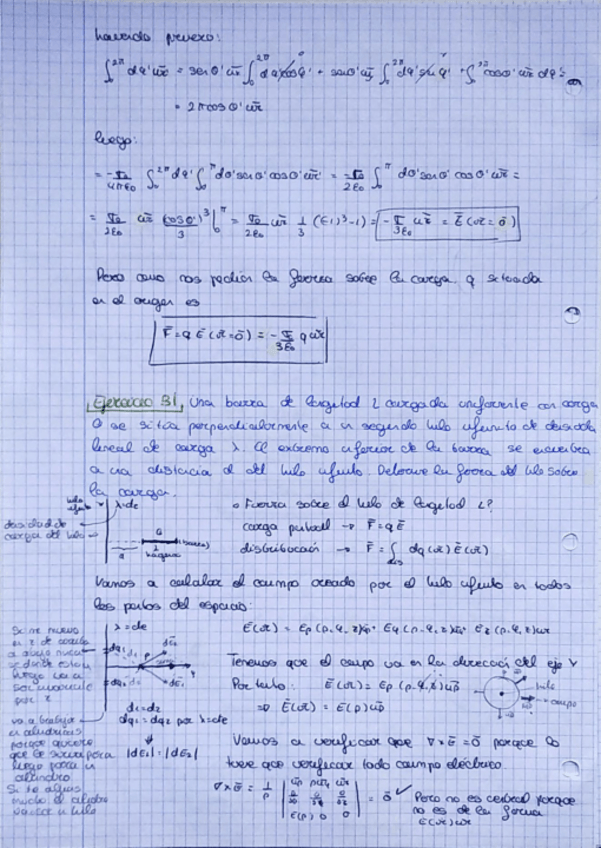 haciendo primero:
∫₀^2π dφ' ūr = senθ' ūx ∫₀^2π dφ' cosφ' + senθ' ūy ∫₀^2π dφ' senφ' + ∫₀^2π cosθ' ūz dφ' =
= 2π cosθ' ūz
luego:
= -σ₀/4πε₀ ∫₀^2π dφ' ∫₀^π dθ' senθ' cosθ' ūz = -σ₀/2ε₀ ∫₀^π dθ' senθ' cosθ' ūz =
= σ₀/2ε₀ ūz (cosθ')³/3 |₀^π = σ₀/2ε₀ ūz 1/3 ((-1)³-1) = -σ₀/3ε₀ ūz = Ē(r̄=ō)
Pero como nos pedían la fuerza sobre la carga q situada
en el origen es
F̄ = q Ē(r̄=ō) = -σ₀/3ε₀ q ūz
Ejercicio B1 Una barra de longitud L cargada uniformemente con carga
Q se sitúa perpendicularmente a un segundo hilo infinito de densidad
lineal de carga λ. El extremo inferior de la barra se encuentra
a una distancia d del hilo infinito. Determine la fuerza del hilo sobre
la carga.
hilo infinito
λ=cte
densidad de
carga del hilo
Q
(barra)
d
L
longitud
o Fuerza sobre el hilo de longitud L?
carga puntual → F̄=qĒ
distribución → F̄=∫ dq(r̄) Ē(r̄)
Vamos a calcular el campo creado por el hilo infinito en todos
los puntos del espacio:
Ē(r̄) = Eρ(ρ,φ,z)ūρ + Eφ(ρ,φ,z)ūφ + Ez(ρ,φ,z)ūz
Si me muevo
en z de arriba
a abajo nunca
se donde estoy
luego va a
ser
por z
va a trabajar
en cilíndricas
porque quiere
que le sirva para
luego para un
cilindro
Si te alejas
mucho el cilindro
va a ser un hilo
λ=cte
dq₁
dq₂
P
dĒ₂
dĒ₁
d₁=d₂
dq₁=dq₂ por λ=cte
|dE₁|=|dE₂|
Tenemos que el campo va en la dirección del eje Y
Por tanto: Ē(r̄) = Eρ(ρ,φ,z)ūρ
⇒ Ē(r̄) = E(ρ)ūρ
hilo
→ campo
Vamos a verificar que ∇×Ē=ō porque lo
tiene que verificar todo campo eléctrico.
∇×Ē = 1/ρ | ūρ ρūφ ūz ; ∂/∂ρ ∂/∂φ ∂/∂z ; E(ρ) 0 0 | = ō ✓
Pero no es central porque
no es de la forma
E(r)ūr